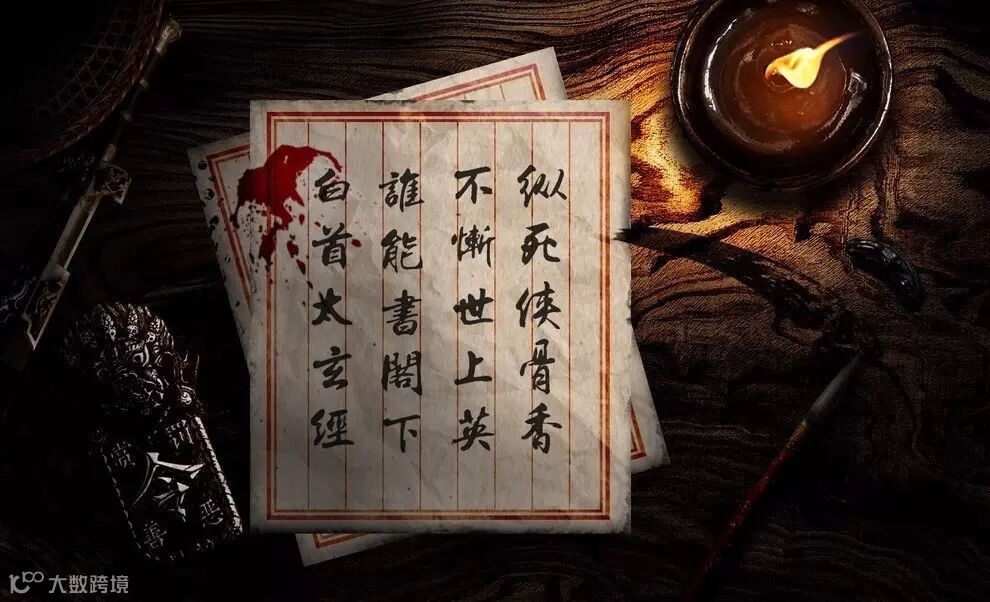 纵死侠骨香
不慚世上英
誰能書閣下
白首太玄經
赏善
罚恶
令
大数跨境